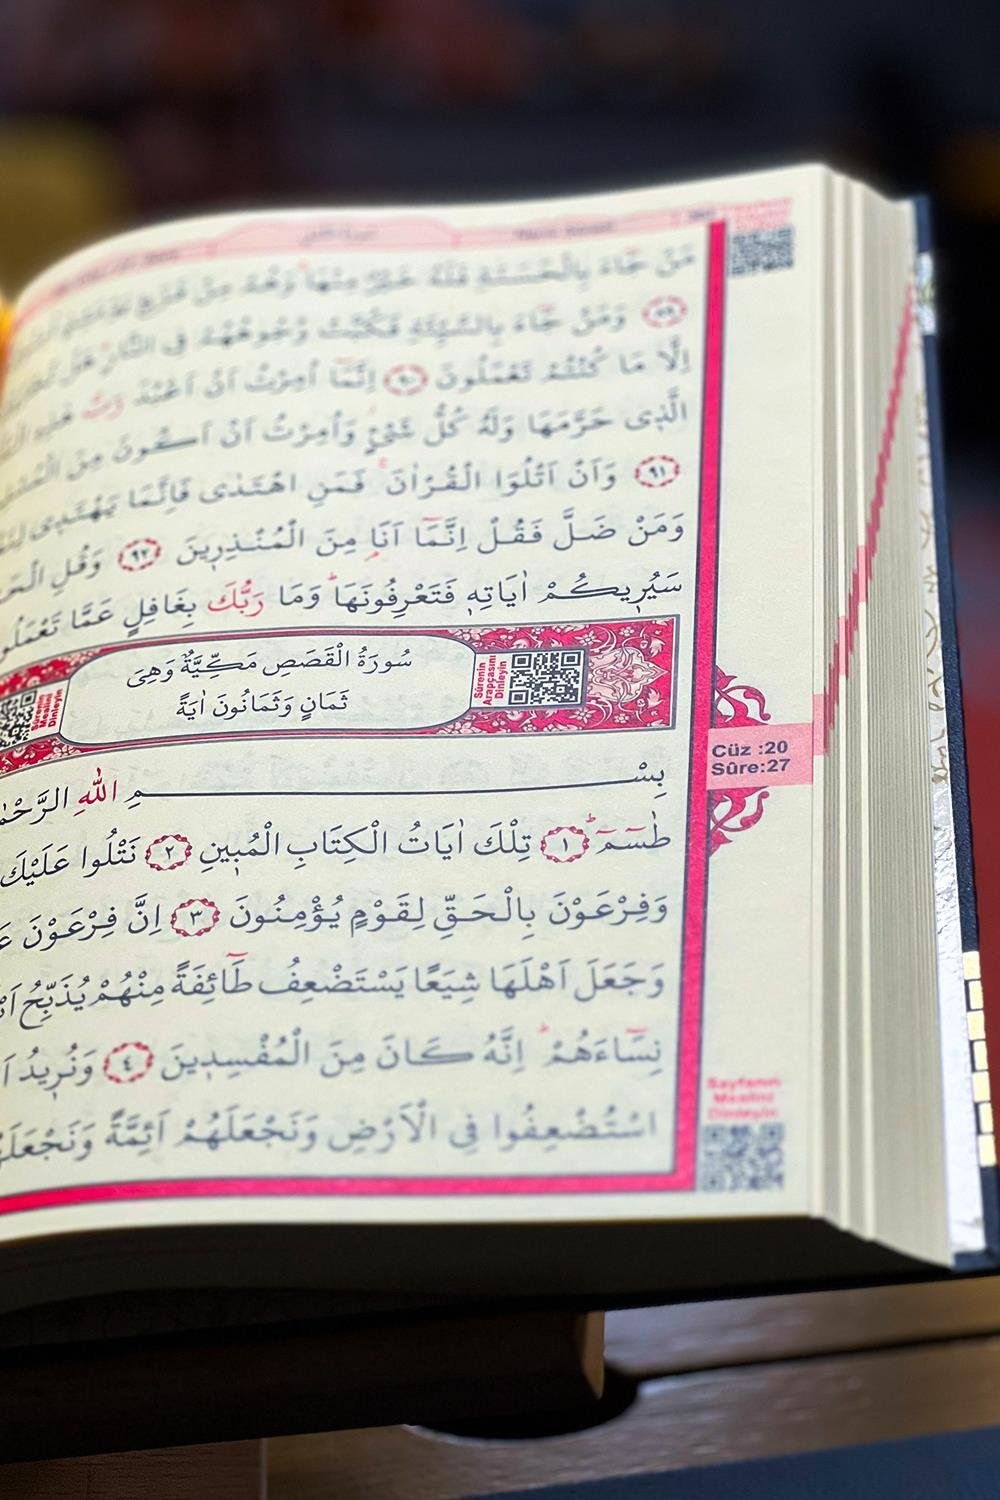 مَنْ جَاءَ بِالْحَسَنَةِ فَلَهُ خَيْرٌ مِنْهَا وَهُمْ مِنْ فَزَعٍ
﴿٨٩﴾ وَمَنْ جَاءَ بِالسَّيِّئَةِ فَكُبَّتْ وُجُوهُهُمْ فِي النَّارِ هَلْ
اِلَّا مَا كُنْتُمْ تَعْمَلُونَ ﴿٩٠﴾ اِنَّمَٓا اُمِرْتُ اَنْ اَعْبُدَ رَبَّ هٰذِهِ
الَّذ۪ي حَرَّمَهَا وَلَهُ كُلُّ شَيْءٍ وَاُمِرْتُ اَنْ اَكُونَ مِنَ
﴿٩١﴾ وَاَنْ اَتْلُوَا الْقُرْاٰنَ فَمَنِ اهْتَدٰى فَاِنَّمَا يَهْتَد۪ي
وَمَنْ ضَلَّ فَقُلْ اِنَّمَٓا اَنَا مِنَ الْمُنْذِر۪ينَ ﴿٩٢﴾ وَقُلِ
سَيُر۪يكُمْ اٰيَاتِه۪ فَتَعْرِفُونَهَا وَمَا رَبُّكَ بِغَافِلٍ عَمَّا
سُورَةُ الْقَصَصِ مَكِّيَّةٌ وَهِيَ
ثَمَانٍ وَثَمَانُونَ اٰيَةً
Sûrenin
Arapçasını
Dinleyin
Sûrenin
Mealini
Dinleyin
Cüz :20
Sûre:27
بِسْـــمِ اللّٰهِ
طٰسٓمٓ ﴿١﴾ تِلْكَ اٰيَاتُ الْكِتَابِ الْمُب۪ينِ ﴿٢﴾ نَتْلُوا عَلَيْكَ
وَفِرْعَوْنَ بِالْحَقِّ لِقَوْمٍ يُؤْمِنُونَ ﴿٣﴾ اِنَّ فِرْعَوْنَ
وَجَعَلَ اَهْلَهَا شِيَعًا يَسْتَضْعِفُ طَٓائِفَةً مِنْهُمْ يُذَبِّحُ
نِسَٓاءَهُمْ اِنَّهُ كَانَ مِنَ الْمُفْسِد۪ينَ ﴿٤﴾ وَنُر۪يدُ
اسْتُضْعِفُوا فِي الْاَرْضِ وَنَجْعَلَهُمْ اَئِمَّةً
Sayfanın
Mealini
Dinleyin